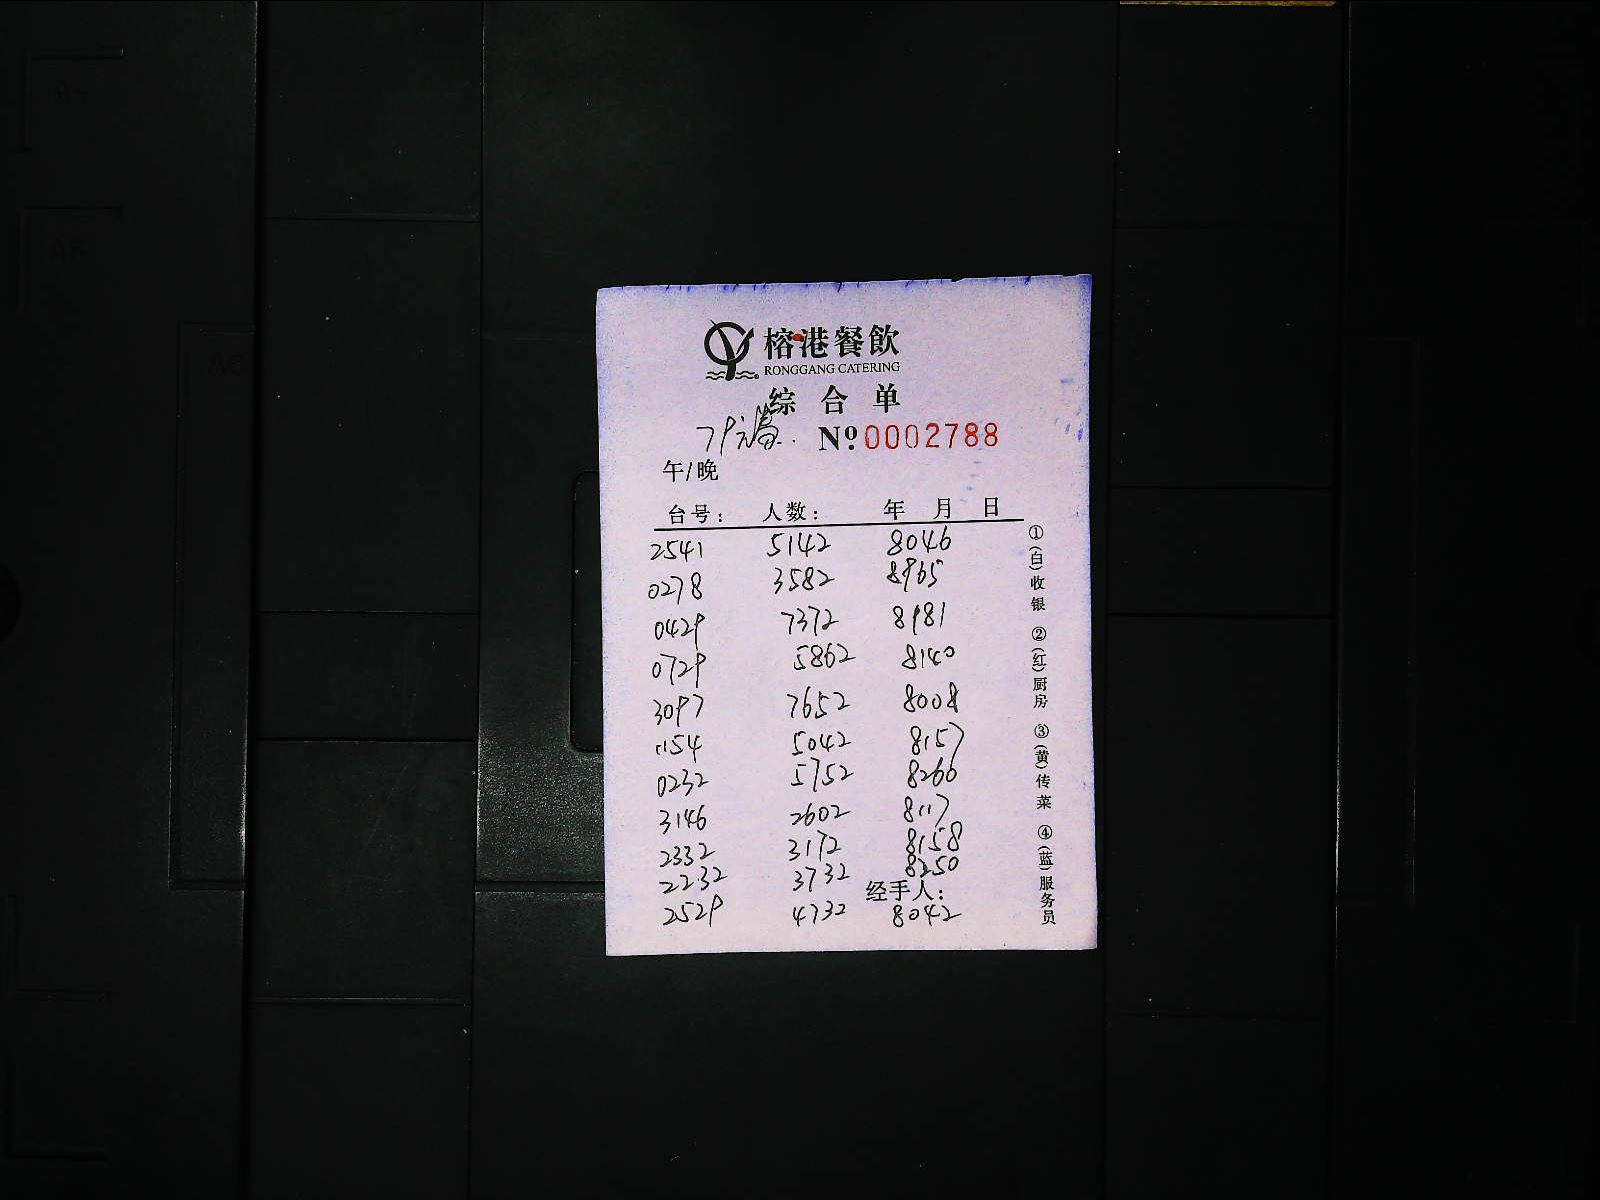 榕港餐飲
RONGGANG CATERING
综合单
Nº:0002788
午/晚
台号： 人数： 年 月 日
2541 5142 8046
0278 3582 8965
0429 7372 8981
0729 5862 8140
3097 7652 8008
1154 5042 8157
0232 5752 8266
3146 2602 8117
2332 3172 8158
2232 3732 8250
经手人：
2529 4732 8042
①(白)收银 ②(红)厨房 ③(黄)传菜 ④(蓝)服务员